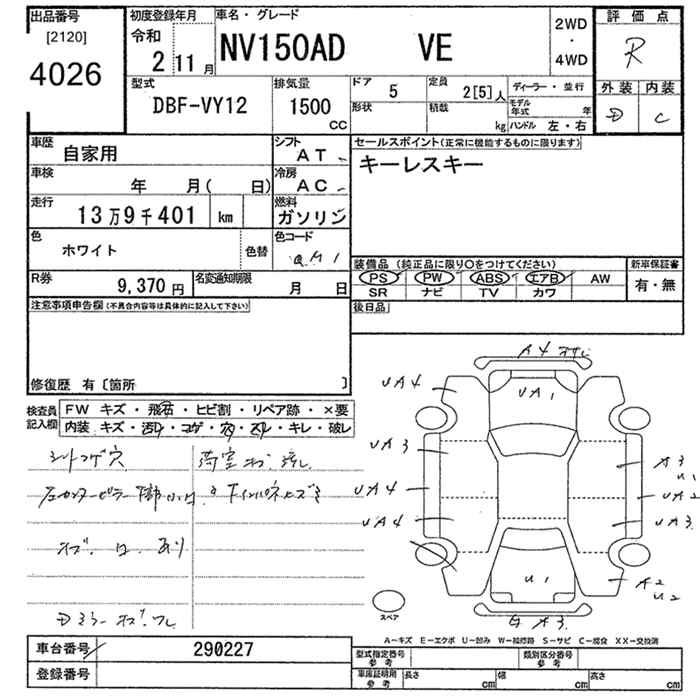 出品番号
[2120]
4026
初度登録年月
令和
2 11月
車名・グレード
NV150AD VE
2WD
・
4WD
評価点
R
外装 内装
D C
型式
DBF-VY12
排気量
1500
CC
ドア 5
形状
定員 2[5]人
積載 kg
ディーラー・並行
モデル年式 年
ハンドル 左・右
車歴
自家用
シフト
AT
車検
年 月( 日)
冷房
AC
走行
13万9千401 km
燃料
ガソリン
色
ホワイト
色替
色コード
QM1
R券
9,370円
名変通知期限
月 日
セールスポイント(正常に機能するものに限ります)
キーレスキー
装備品(純正品に限り○をつけてください)
PS PW ABS エアB AW
SR ナビ TV カワ
新車保証書
有・無
後日品
注意事項申告欄(不具合内容等は具体的に記入して下さい)
修復歴 有〔箇所 〕
検査員
記入欄
FW キズ・飛石・ヒビ割・リペア跡・×要
内装 キズ・汚れ・コゲ・穴・スレ・キレ・破レ
シートコゲ穴
キズ・凹・あり
A4
UA4
UA1
UA3
UA4
UA4
A3
U1
UA2
UA3
A2
U2
U1
A3
スペア
A-キズ E-エクボ U-凹み W-補修跡 S-サビ C-腐食 XX-交換済
車台番号
290227
登録番号
型式指定番号
参考
類別区分番号
参考
車庫証明用
参考
長さ cm
幅 cm
高さ cm